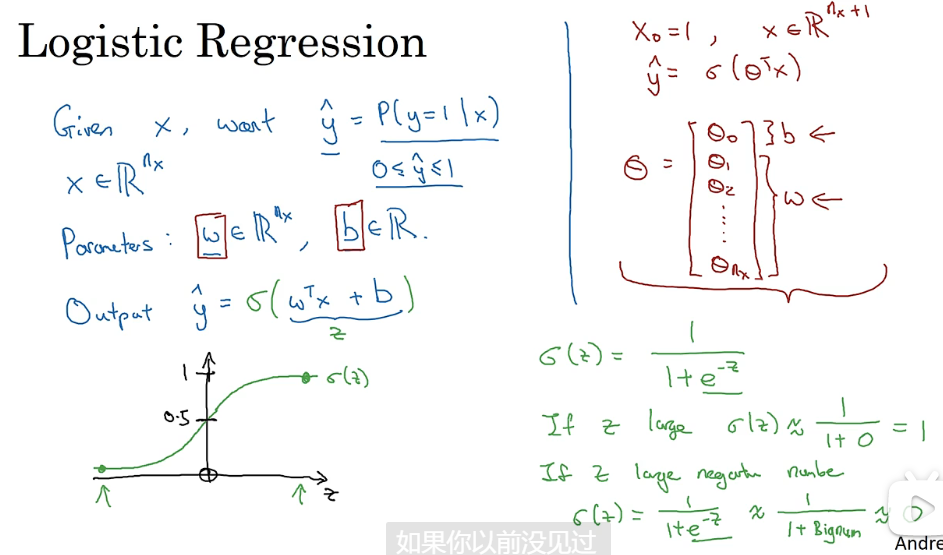 Logistic Regression
Given x, want ŷ = P(y=1|x)
0 ≤ ŷ ≤ 1
x ∈ ℝ^{nₓ}
Parameters: w ∈ ℝ^{nₓ}, b ∈ ℝ.
Output ŷ = σ(wᵀx + b)
z
1
0.5
σ(z)
z
X₀ = 1, x ∈ ℝ^{nₓ+1}
ŷ = σ(θᵀx)
θ = [θ₀ θ₁ θ₂ ⋮ θ_{nₓ}] } b ← } w ←
σ(z) = 1 / (1 + e^{-z})
If z large σ(z) ≈ 1 / (1 + 0) = 1
If z large negative number
σ(z) = 1 / (1 + e^{-z}) ≈ 1 / (1 + Bignum) ≈ 0
如果你以前没见过
Andre